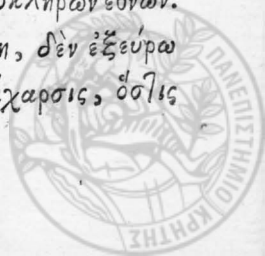 ὁλοκλήρων ἐθνῶν.
η, δὲν ἐξεύρω
χαρσις, ὅστις
ΠΑΝΕΠΙΣΤΗΜΙΟ ΚΡΗΤΗΣ